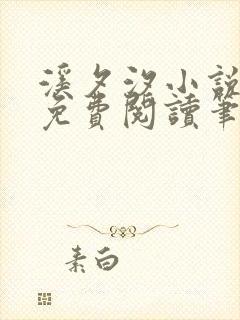 溪夕汐小說
免費閱讀筆
素白